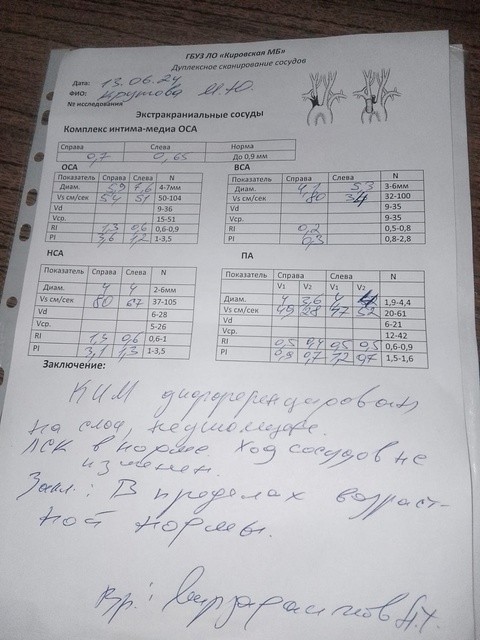 ГБУЗ ЛО «Кировская МБ»
Дуплексное сканирование сосудов
Дата: 13.06.24
ФИО: М.Ю.
№ исследования
Экстракраниальные сосуды
Комплекс интима-медиа ОСА
Справа Слева Норма
0,7 0,65 До 0,9 мм
ОСА
Показатель Справа Слева N
Диам. 5,9 7,6 4-7мм
Vs см/сек 54 51 50-104
Vd 9-36
Vср. 15-51
RI 1,3 0,6 0,6-0,9
PI 3,6 1,2 1-3,5
ВСА
Показатель Справа Слева N
Диам. 4,1 5,3 3-6мм
Vs см/сек 80 34 32-100
Vd 9-35
Vср. 9-35
RI 0,2 0,5-0,8
PI 0,3 0,8-2,8
НСА
Показатель Справа Слева N
Диам. 4 4 2-6мм
Vs см/сек 80 67 37-105
Vd 6-28
Vср. 5-26
RI 1,3 0,6 0,6-1
PI 3,1 1,3 1-3,5
ПА
Показатель Справа Слева N
V₁ V₂ V₁ V₂
Диам. 4 3,6 4 1,9-4,4
Vs см/сек 49 28 47 52 20-61
Vd 6-21
Vср. 12-42
RI 0,5 0,4 0,5 0,5 0,6-0,9
PI 0,8 0,7 1,2 0,7 1,5-1,6
Заключение:
КИМ дифференцирован
на слои, не утолщен.
ЛСК в норме. Ход сосудов не
изменен.
Закл.: В пределах возраст-
ной нормы.
Вр.: